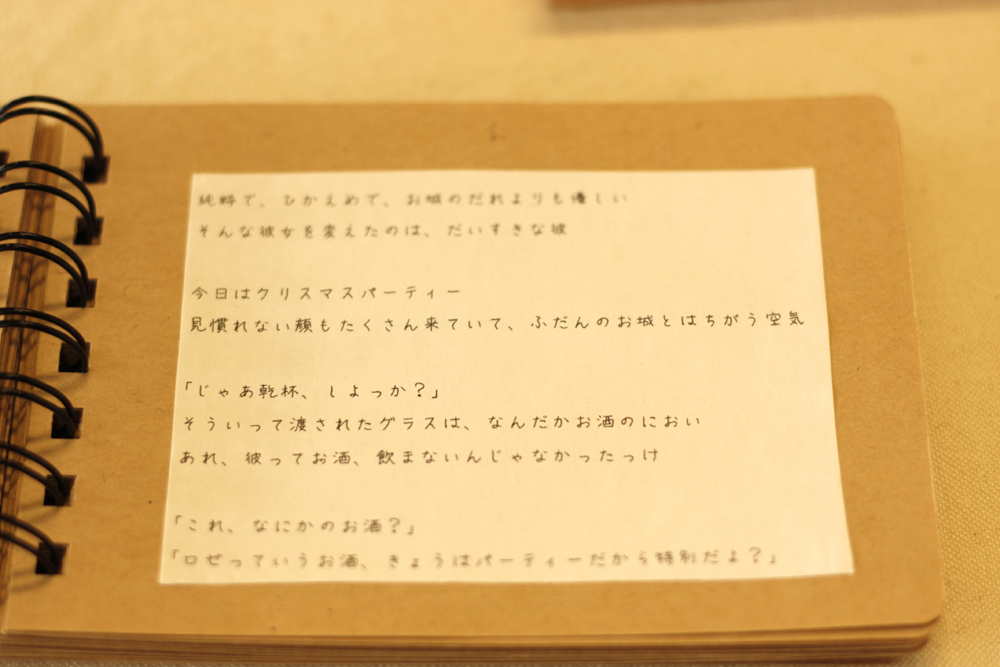 純粋で、ひかえめで、お城のだれよりも優しい
そんな彼女を変えたのは、だいすきな彼
今日はクリスマスパーティー
見慣れない顔もたくさん来ていて、ふだんのお城とはちがう空気
「じゃあ乾杯、しよっか？」
そういって渡されたグラスは、なんだかお酒のにおい
あれ、彼ってお酒、飲まないんじゃなかったっけ
「これ、なにかのお酒？」
「ロゼっていうお酒、きょうはパーティーだから特別だよ？」